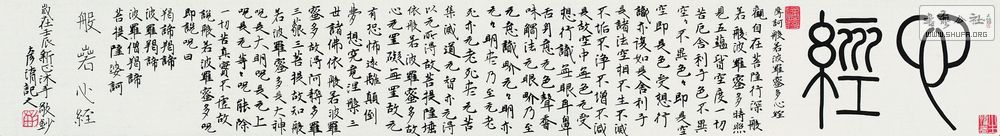 心經
摩訶般若波羅蜜多心經
觀自在菩薩行深般
若波羅蜜多時照
見五蘊皆空度一切
苦厄舍利子色不異
空空不異色色即是
空空即是色受想行
識亦復如是舍利子
是諸法空相不生不滅
不垢不淨不增不減
是故空中无色无受
想行識无眼耳鼻
舌身意无色聲香
味觸法无眼界乃至
无意識界无无明亦
无无明盡乃至无老
死亦无老死盡无苦
集滅道无智亦无得
以无所得故菩提薩埵
依般若波羅蜜多故
心无罣礙无罣礙故
无有恐怖遠離顛倒
夢想究竟涅槃三
世諸佛依般若波羅
蜜多故得阿耨多羅
三藐三菩提故知般
若波羅蜜多是大神
咒是大明咒是无上
咒是无等等咒能除
一切苦真實不虛故
說般若波羅蜜多咒
即說咒曰
揭諦揭諦
波羅揭諦
波羅僧揭諦
菩提薩婆訶
般若心經
歲在壬辰新正沐手敬鈔
WWW.SHUFA.ORG